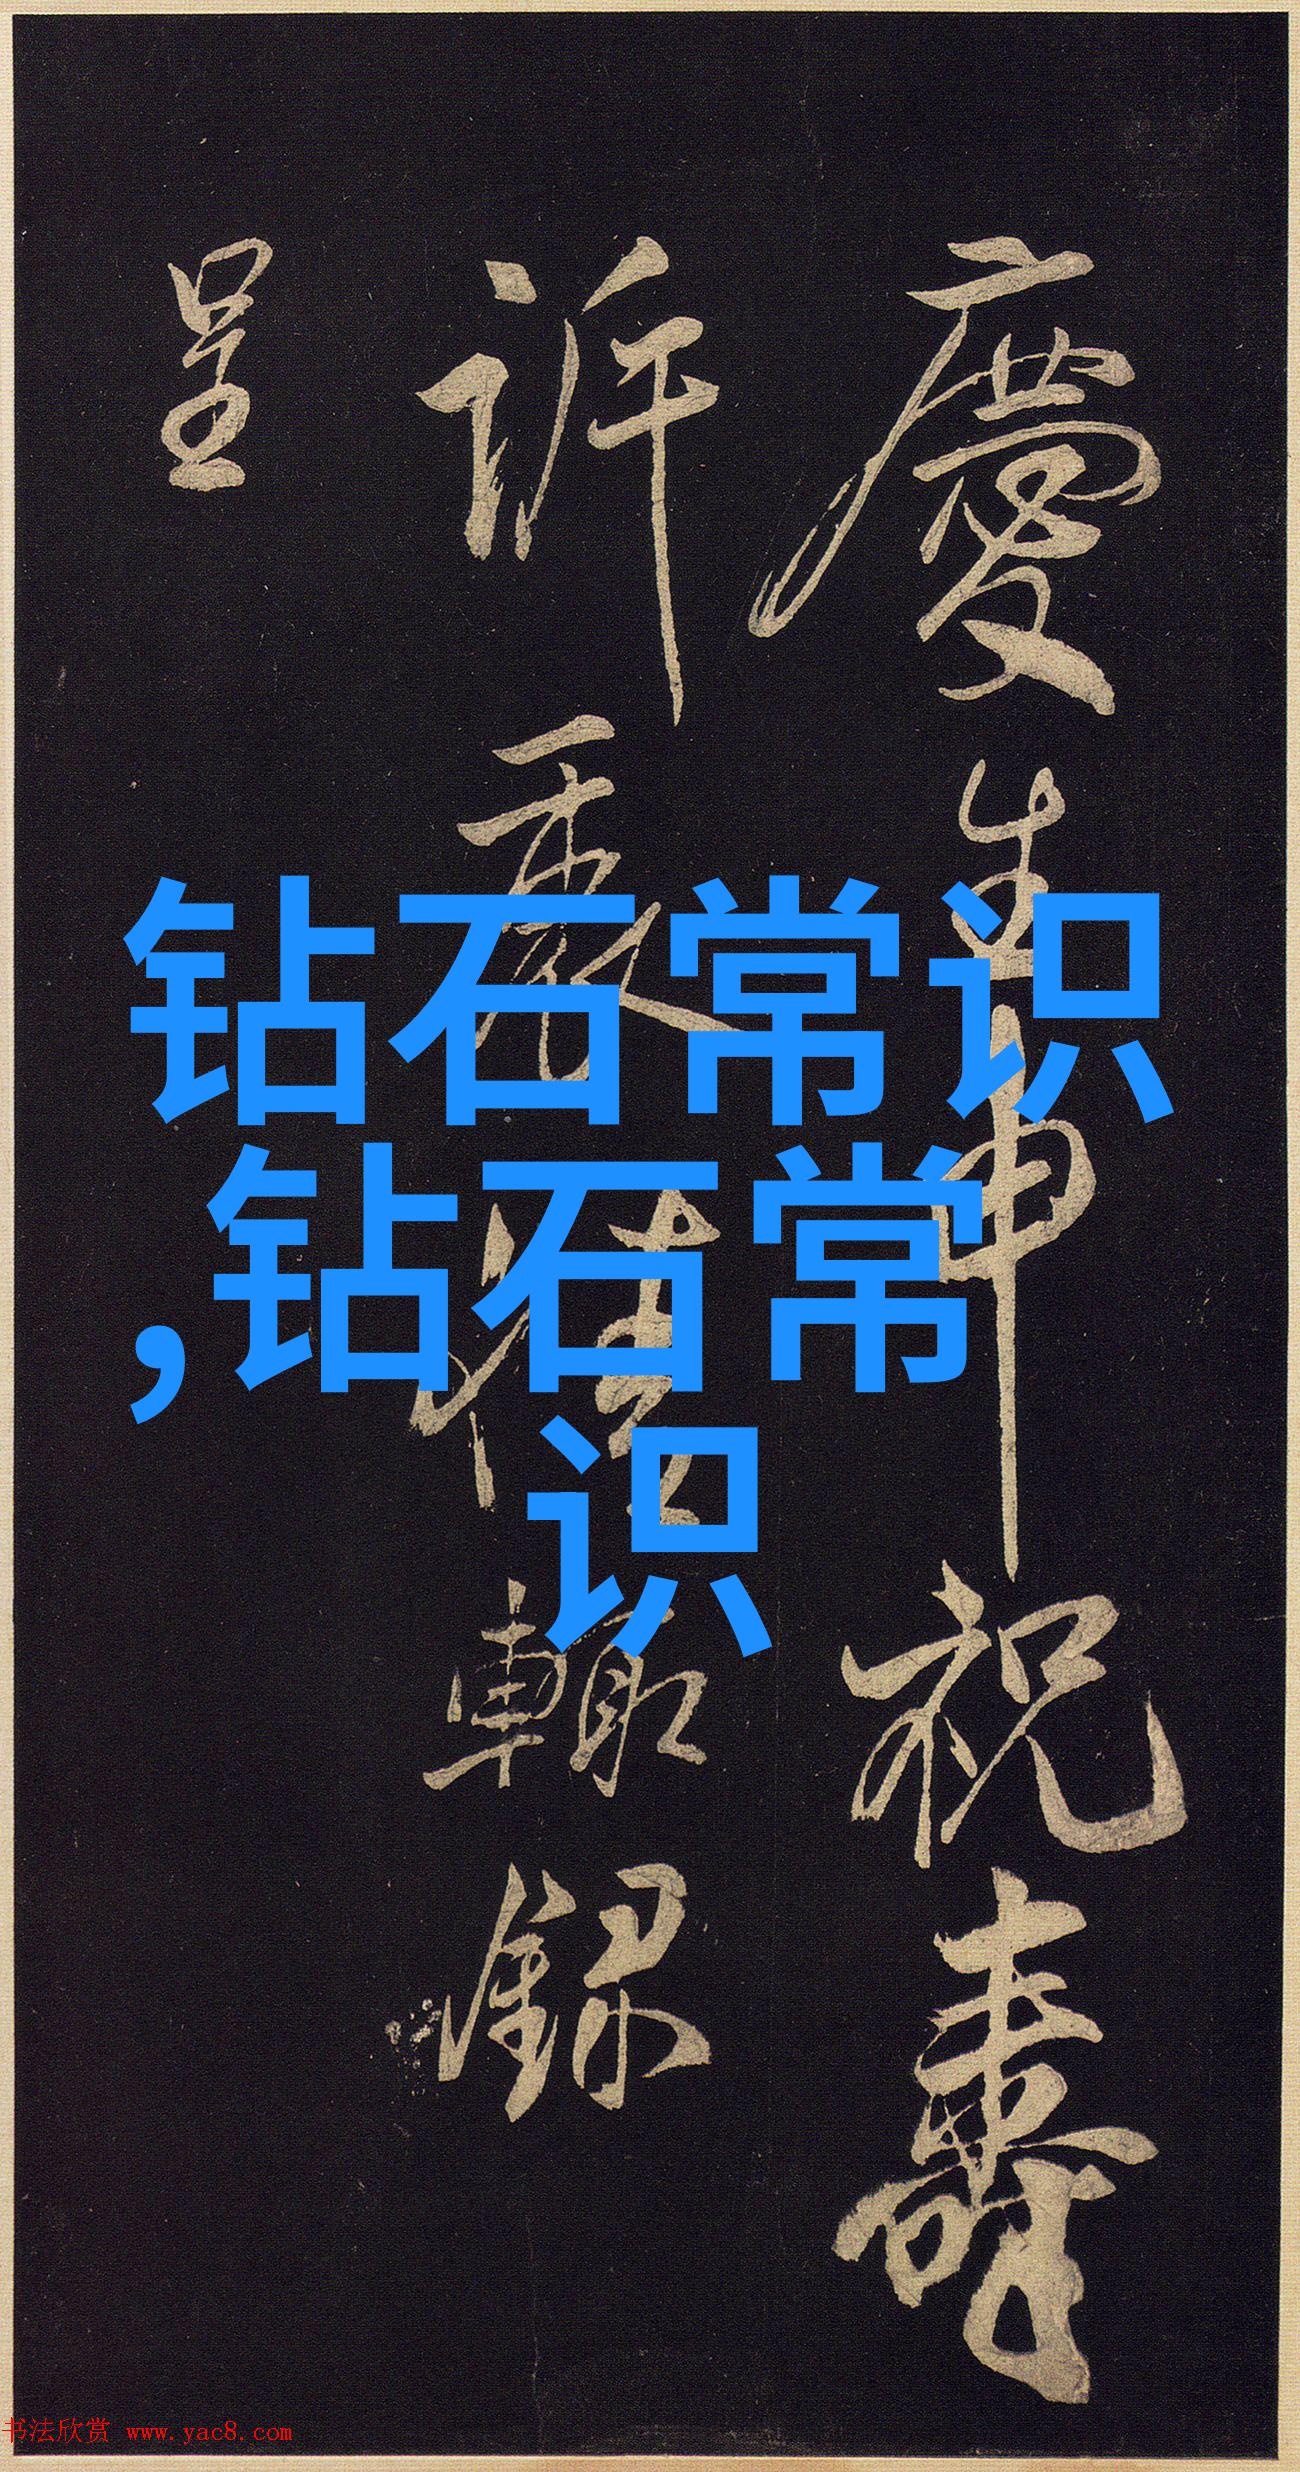 慶生申祝壽
訢
輙録
呈
钻石常识
,钻石常
识
书法欣赏 www.yac8.com